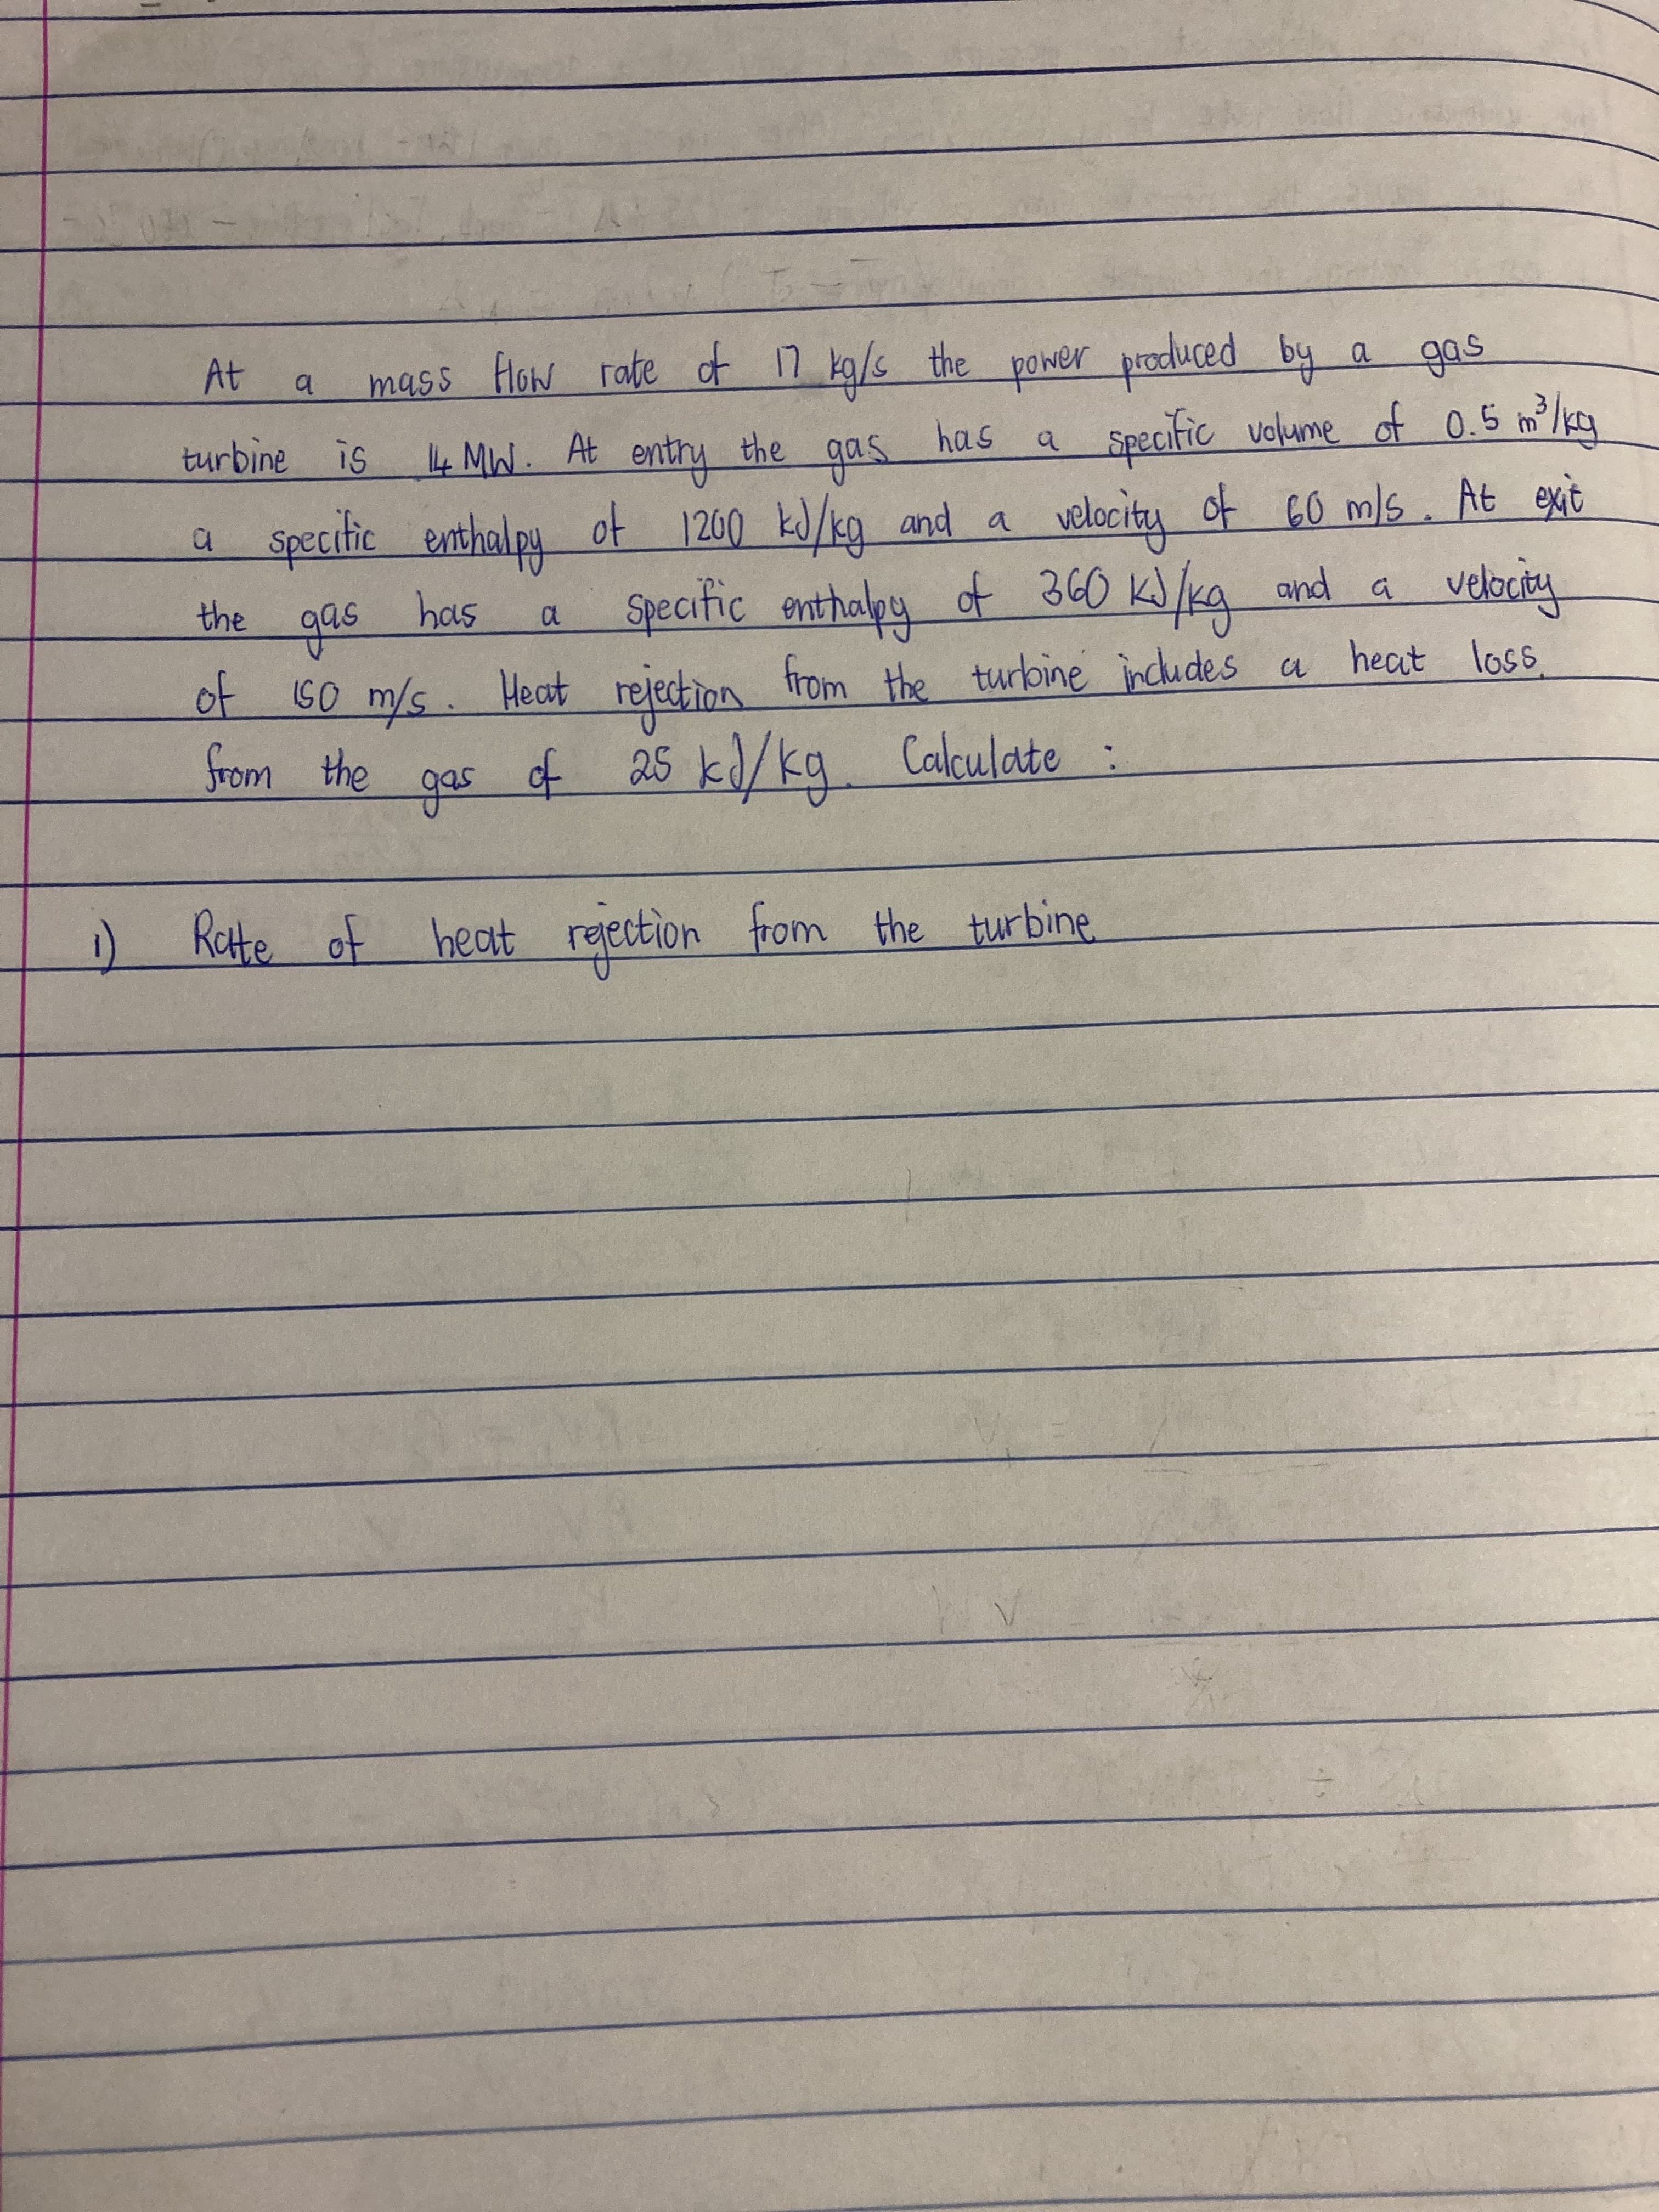 At a mass flow rate of 17 kg/s the power produced by a gas
turbine is 14 MW. At entry the gas has a specific volume of 0.5 m³/kg
a specific enthalpy of 1200 kJ/kg and a velocity of 60 m/s. At exit
the gas has a specific enthalpy of 360 kJ/kg and a velocity
of 150 m/s. Heat rejection from the turbine includes a heat loss
from the gas of 25 kJ/kg. Calculate :
1) Rate of heat rejection from the turbine